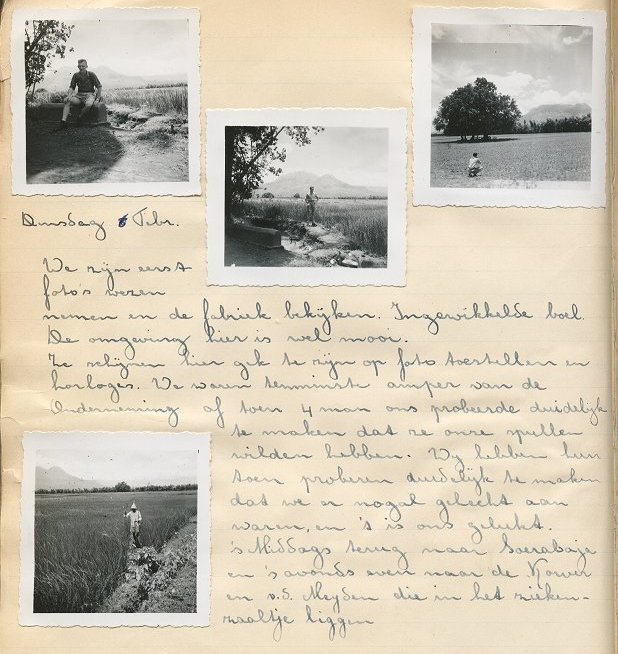 Dinsdag 6 Febr.
We zijn eerst
foto's wezen
nemen en de fabriek bekijken. Ingewikkelde boel.
De omgeving hier is wel mooi.
Ze schijnen hier gek te zijn op foto toestellen en
horloges. We waren tenminste amper van de
Onderneming of toen 4 man ons probeerde duidelijk
te maken dat ze onze spullen
wilden hebben. Wij hebben hun
toen proberen duidelijk te maken
dat we er nogal gehecht aan
waren, en 't is ons gelukt.
's Middags terug naar Soerabaja
en 's avonds even naar de Korver
en v.d. Meyden die in het zieken-
zaaltje liggen